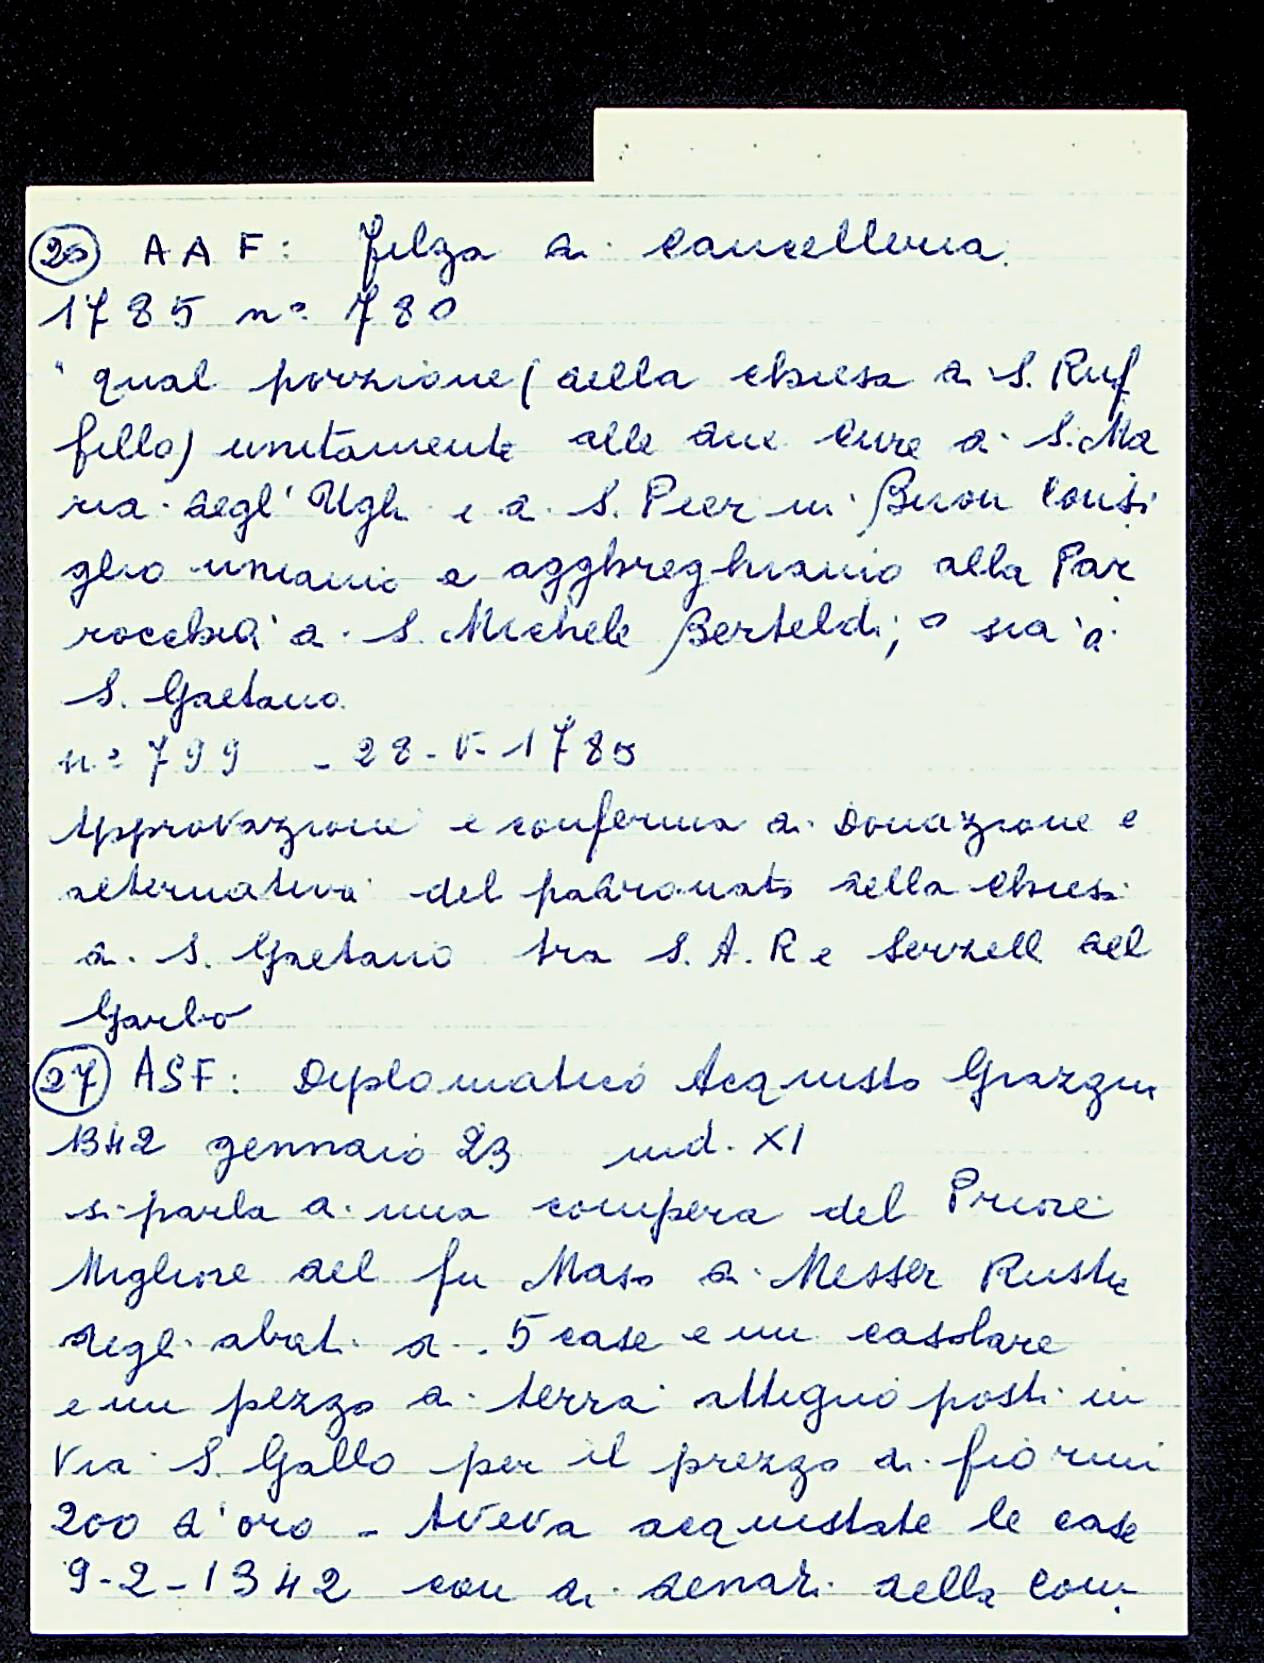 26 AAF: Filza di Cancelleria.
1785 n° 780
"qual porzione (della chiesa di S. Ruf
fillo) unitamente alle due cure di S. Ma
ria degl'Ughi e di S. Pier in Buon Consi
glio uniamo e agghreghiamo alla Par
rocchia di S. Michele Berteldi; o sia di
S. Gaetano
n° 799 - 28-V-1785
Approvazione e conferma di donazione e
alternativa del padronato della chiesa
di S. Gaetano tra S.A.R e Serzelli del
Garbo
27 ASF: Diplomatico Acquisto Grazzini
1342 gennaio 23 ind. XI
si parla di una compera del Priore
Migliore del fu Maso di Messer
degli abati di 5 case e un casolare
e un pezzo di terra attiguo posti in
Via S. Gallo per il prezzo di fiorini
200 d'oro - Aveva acquistate le case
9-2-1342 con di denari della Com